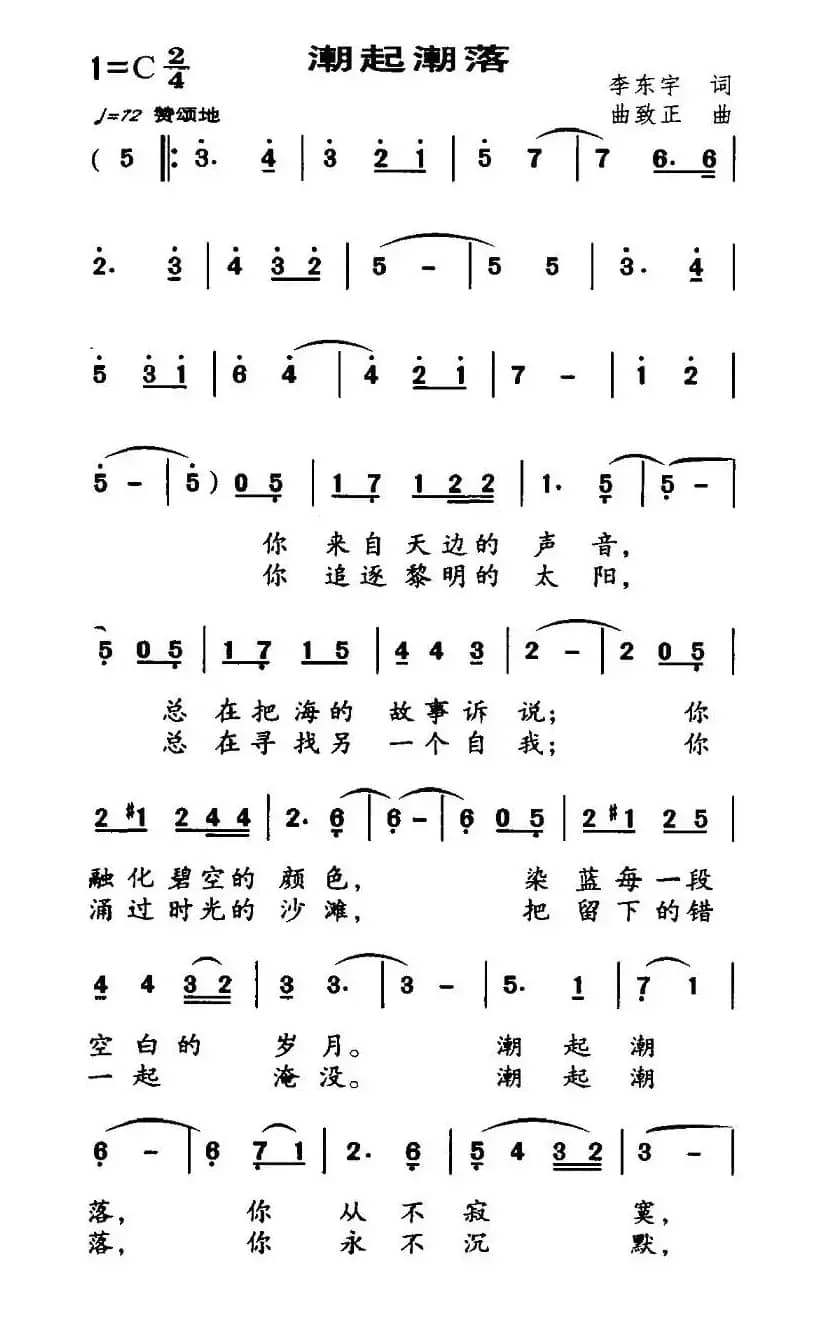 潮起潮落
1=C 2/4
李东宇 词
♩=72 赞颂地
曲致正 曲
( 5 ‖: 3. 4 | 3 2 1 | 5 7 | 7 6. 6 |
2. 3 | 4 3 2 | 5 - | 5 5 | 3. 4 |
5 3 1 | 6 4 | 4 2 1 | 7 - | 1 2 |
5 - | 5 ) 0 5 | 1 7 1 2 2 | 1. 5 | 5 - |
你 来自天边的 声 音,
你 追逐黎明的 太 阳,
5 0 5 | 1 7 1 5 | 4 4 3 | 2 - | 2 0 5 |
总 在把海的 故事诉 说; 你
总 在寻找另 一个自 我; 你
2 #1 2 4 4 | 2. 6 | 6 - | 6 0 5 | 2 #1 2 5 |
融化碧空的 颜 色, 染 蓝每一段
涌过时光的 沙 滩, 把 留下的错
4 4 3 2 | 3 3. | 3 - | 5. 1 | 7 1 |
空白的 岁月。 潮 起 潮
一起 淹没。 潮 起 潮
6 - | 6 7 1 | 2. 6 | 5 4 3 2 | 3 - |
落, 你 从 不 寂 寞,
落, 你 永 不 沉 默,